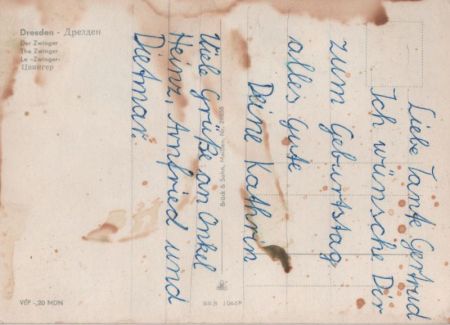 Dresden - Дрезден
Der Zwinger
The Zwinger
Le «Zwinger»
Цвингер
Liebe Tante Gertrud
Ich wünsche Dir
zum Geburtstag
alles Gute
Deine Kathrin
Viele Grüße an Onkel
Heinz, Arnfried und
Dietmar.
Brück & Sohn,
VEP -,20 MDN